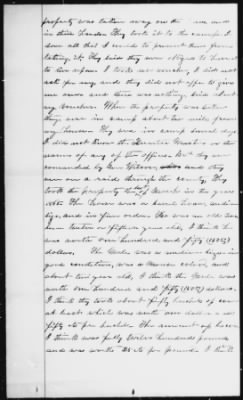 property was taken away on the same
in three loads They took it to the camp I
done all that I could to prevent them from
taking it. They said they were obliged to have it
I took no voucher, I did not
ask for any and they did not offer to give
me onds and there was nothing said about
any voucher. When the property was taken
they were in camp about two miles from
my house. They were in camp several days
I did not know the Quarter Master or the
names of any of the officers. But they were
commanded by Gen and they
were on a raid through the county. They
took the property of March in the year
1865 The horse was a horse, medium
size, and in fine order. He was an old horse
some twelve or fifteen years old, I think he
was worth one hundred and fifty (150$)
dollars. The Mule was a medium size in
good condition, was a color, and
about ten years old, I think the Mule was
worth one hundred and fifty (150$) dollars.
I think they took about fifty bushels of corn
at least which was worth one dollar and
fifty cts per bushel. The amount of bacon
I think was fully twelve hundred pounds
and was worth 25 cts per pound I think